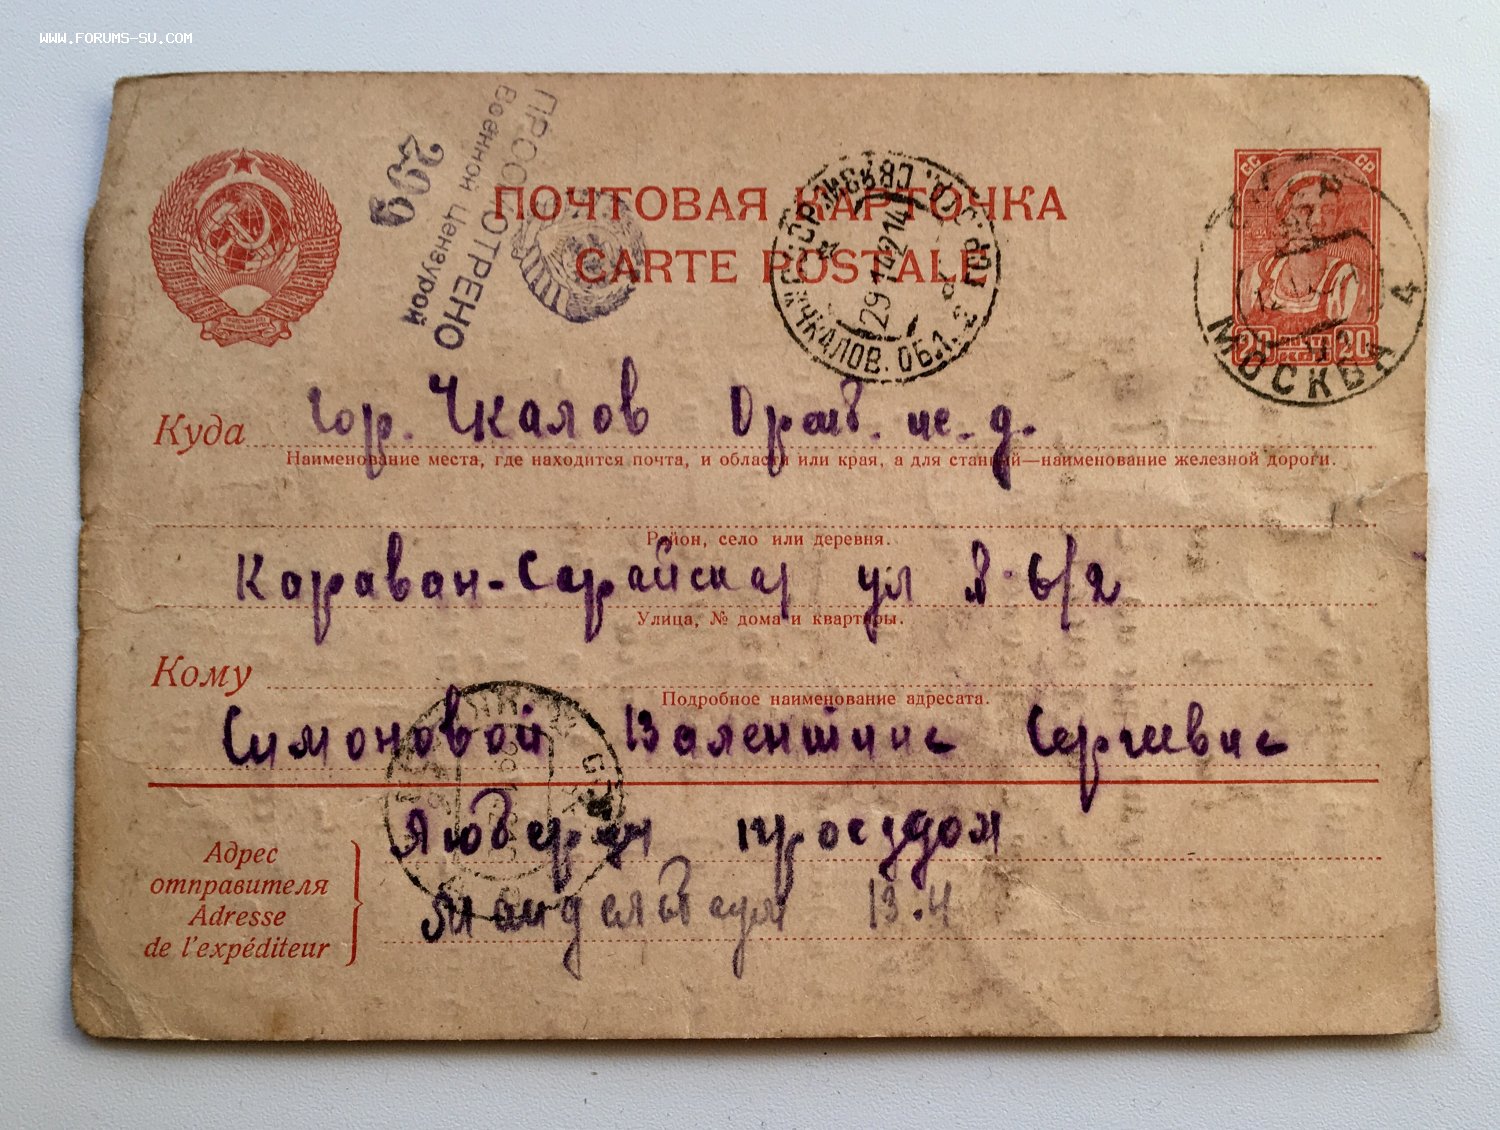 WWW.FORUMS-SU.COM
ПРОСМОТРЕНО
Военной Цензурой
299
ПОЧТОВАЯ КАРТОЧКА
CARTE POSTALE
ЧКАЛОВ. ОБЛ.
29 1 42 14
СС СР
20 ПОЧТА 20
МОСКВА 4
Куда гор. Чкалов Оренб. ж. д.
Наименование места, где находится почта, и области или края, а для станций—наименование железной дороги.
Район, село или деревня.
Караван-Сарайская ул д. 6/2
Улица, № дома и квартиры.
Кому
Подробное наименование адресата.
Симоновой Валентине Сергеевне
Адрес
отправителя
Adresse
de l'expéditeur
Люберцы проездом
13.4